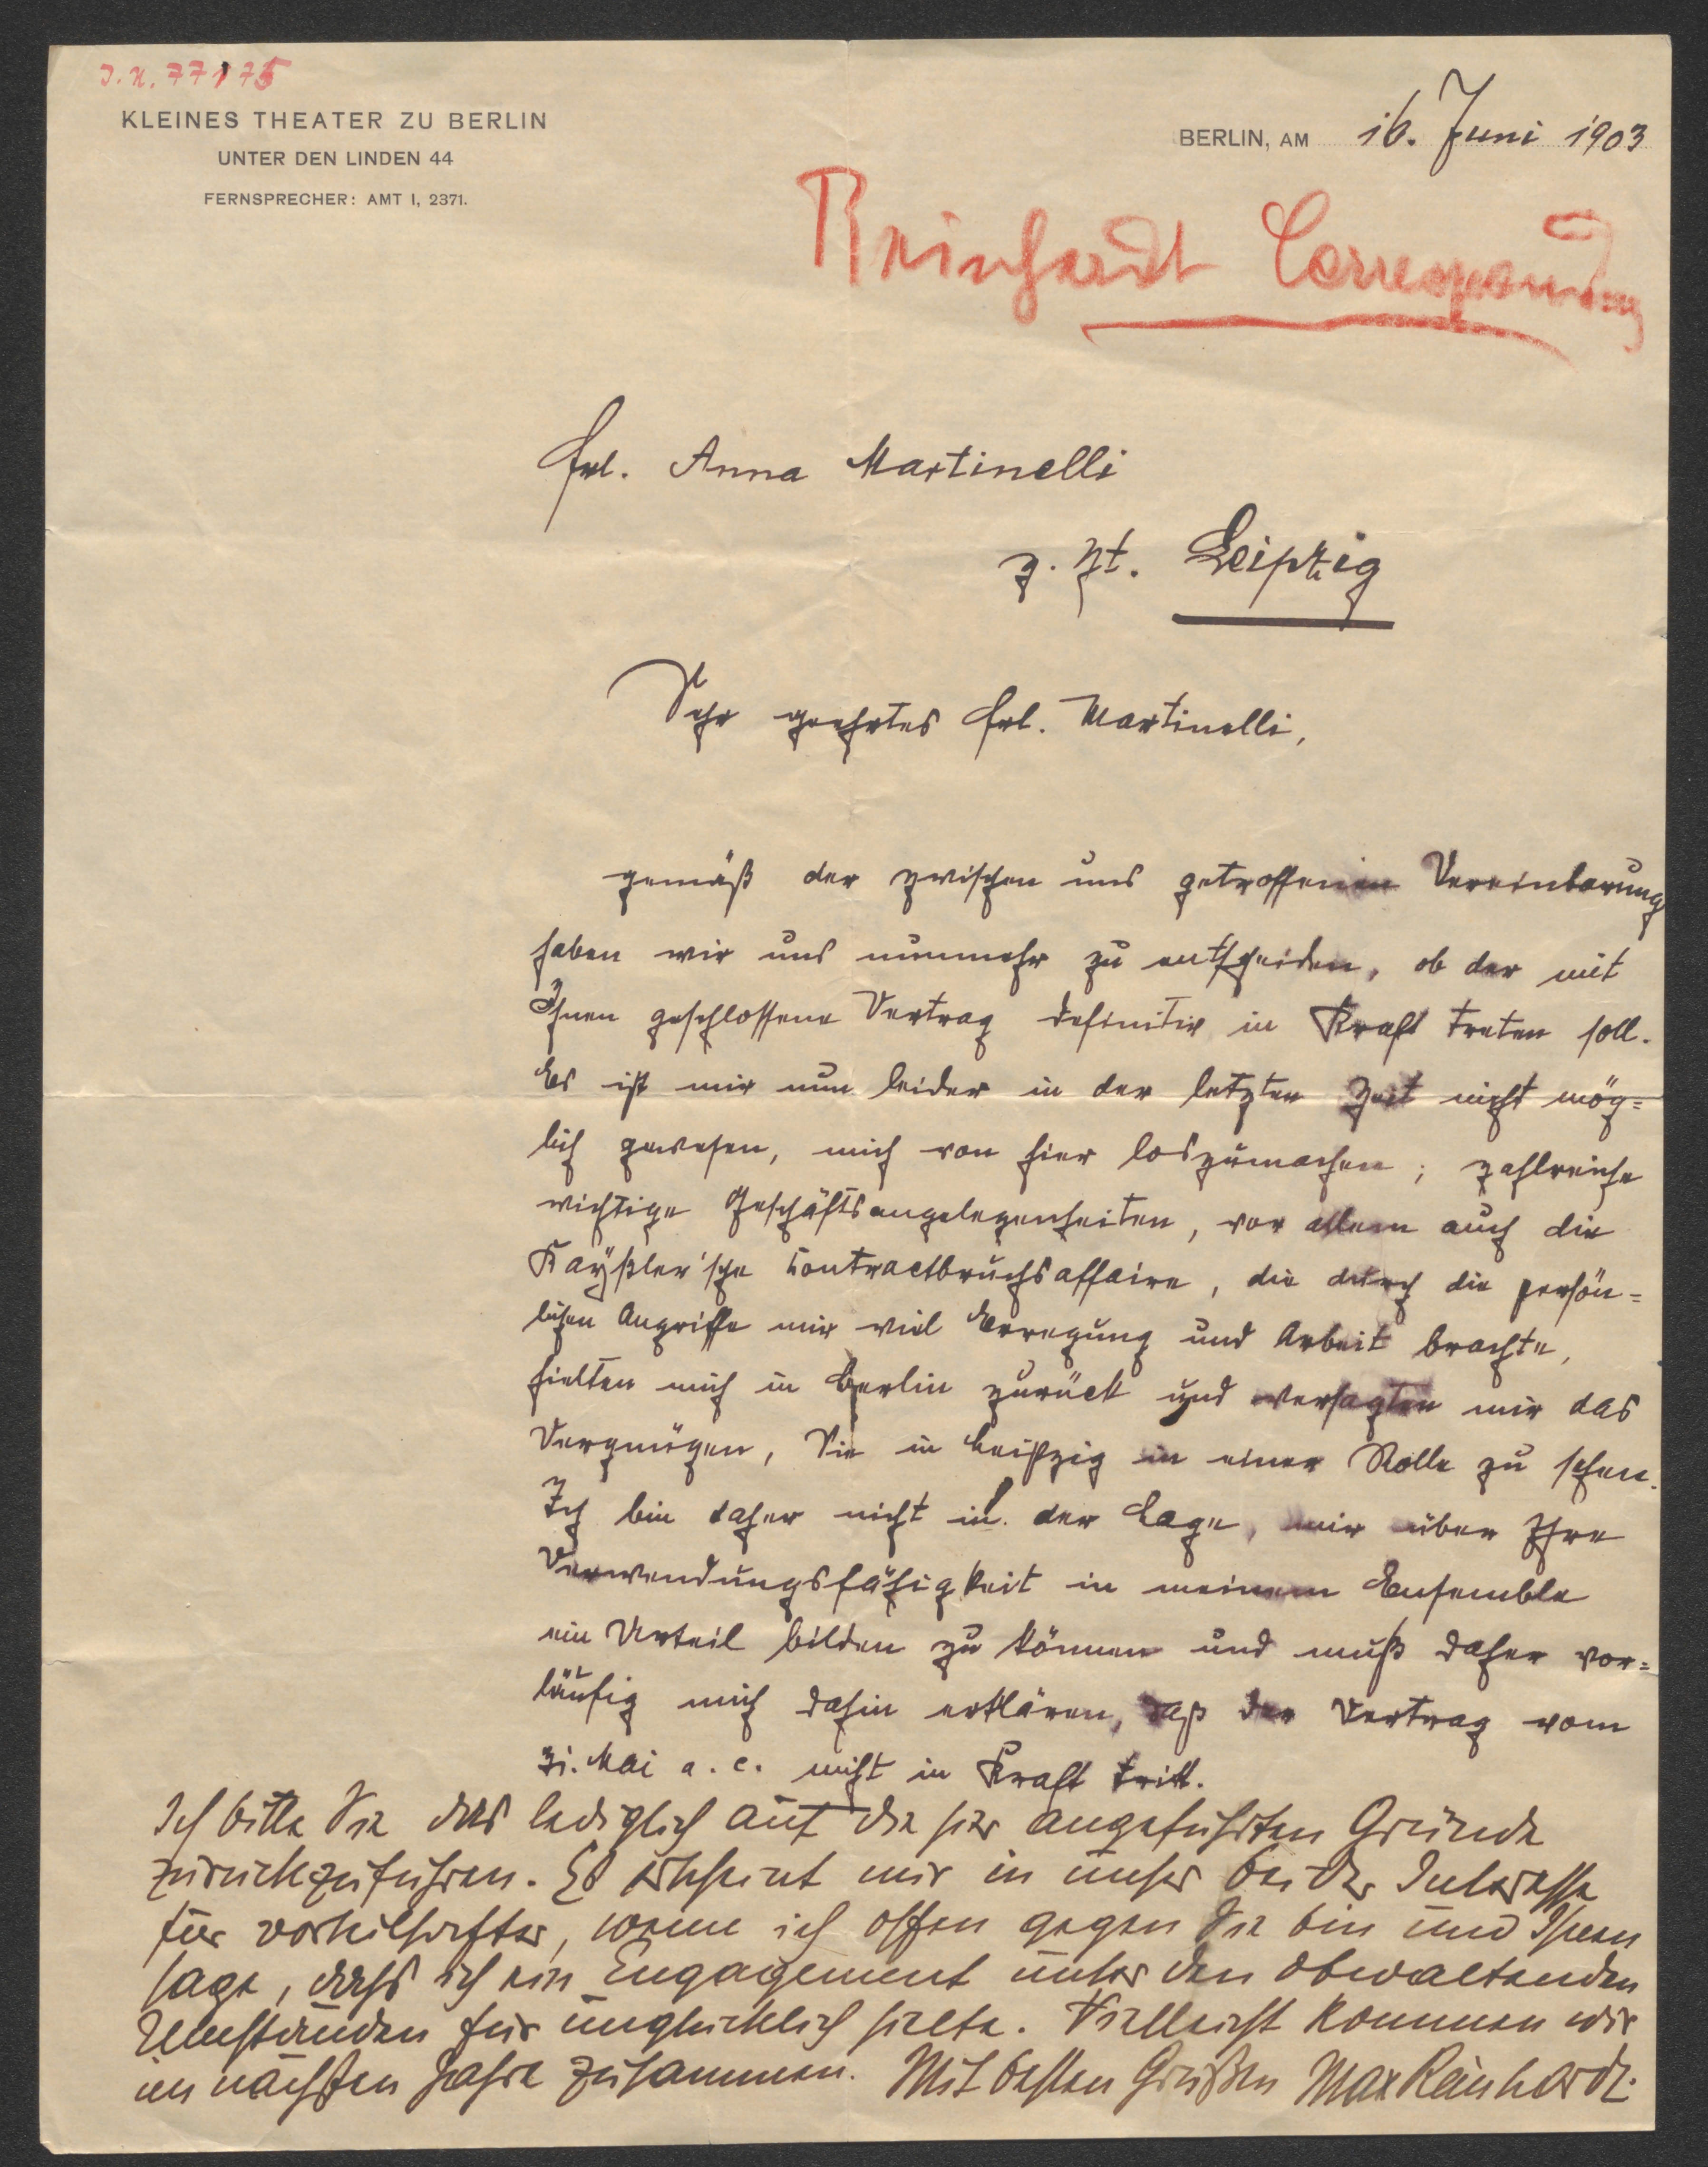 J.N. 77175
KLEINES THEATER ZU BERLIN
UNTER DEN LINDEN 44
FERNSPRECHER: AMT I, 2371.
BERLIN, AM 16. Juni 1903
Reinhardt Correspondenz
Frl. Anna Martinelli
z. Zt. Leipzig
Sehr geehrtes Frl. Martinelli,
gemäß der zwischen uns getroffenen Vereinbarung
haben wir uns nunmehr zu entscheiden, ob der mit
Ihnen geschlossene Vertrag definitiv in Kraft treten soll.
Es ist mir nun leider in der letzten Zeit nicht mög=
lich gewesen, mich von hier loszumachen; zahlreiche
wichtige Geschäftsangelegenheiten, vor allem auch die
Kayßler'sche Contractbruchsaffaire, die durch die persön=
lichen Angriffe mir viel Erregung und Arbeit brachte,
hielten mich in Berlin zurück und versagten mir das
Vergnügen, Sie in Leipzig in einer Rolle zu sehen.
Ich bin daher nicht in der Lage, mir über Ihre
Verwendungsfähigkeit in meinem Ensemble
ein Urteil bilden zu können und muß daher vor=
läufig mich dahin erklären, daß der Vertrag vom
31. Mai a. c. nicht in Kraft tritt.
Ich bitte Sie das lediglich auf die hier angeführten Gründe
zurückzuführen. Es erscheint mir in unser beider Interesse
für vorteilhafter, wenn ich offen gegen Sie bin und Ihnen
sage, dass ich ein Engagement unter den obwaltenden
Umständen für unglücklich hielte. Vielleicht kommen wir
im nächsten Jahre zusammen. Mit besten Grüßen Max Reinhardt.